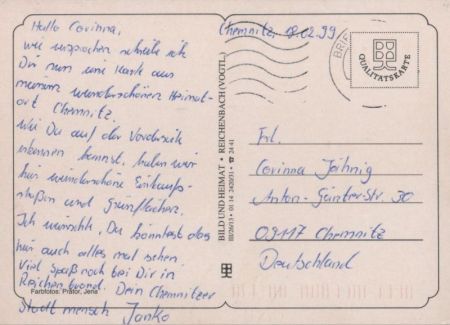 Hallo Corinna,
wie versprochen schreibe ich
Dir nun eine Karte aus
meiner wunderschönen Heimat-
ort Chemnitz.
Wie Du auf der Vorderseite
erkennen kannst, haben wir
hier wunderschöne Einkaufs-
straßen und Grünflächen.
Ich wünschte, Du könntest das
hier auch alles mal sehen
Viel Spaß noch bei Dir in
Dein Chemnitzer
Stadtmensch Janko
Farbfotos: Prätor, Jena
BILD UND HEIMAT • REICHENBACH (VOGTL.)
III/26/13 • 01 14 2420/31 • ☎ 24 41
Chemnitz, 18.02.99
BRIEF
QUALITÄTSKARTE
Frl.
Corinna Jähnig
Anton-Günter-Str. 30
09117 Chemnitz
Deutschland